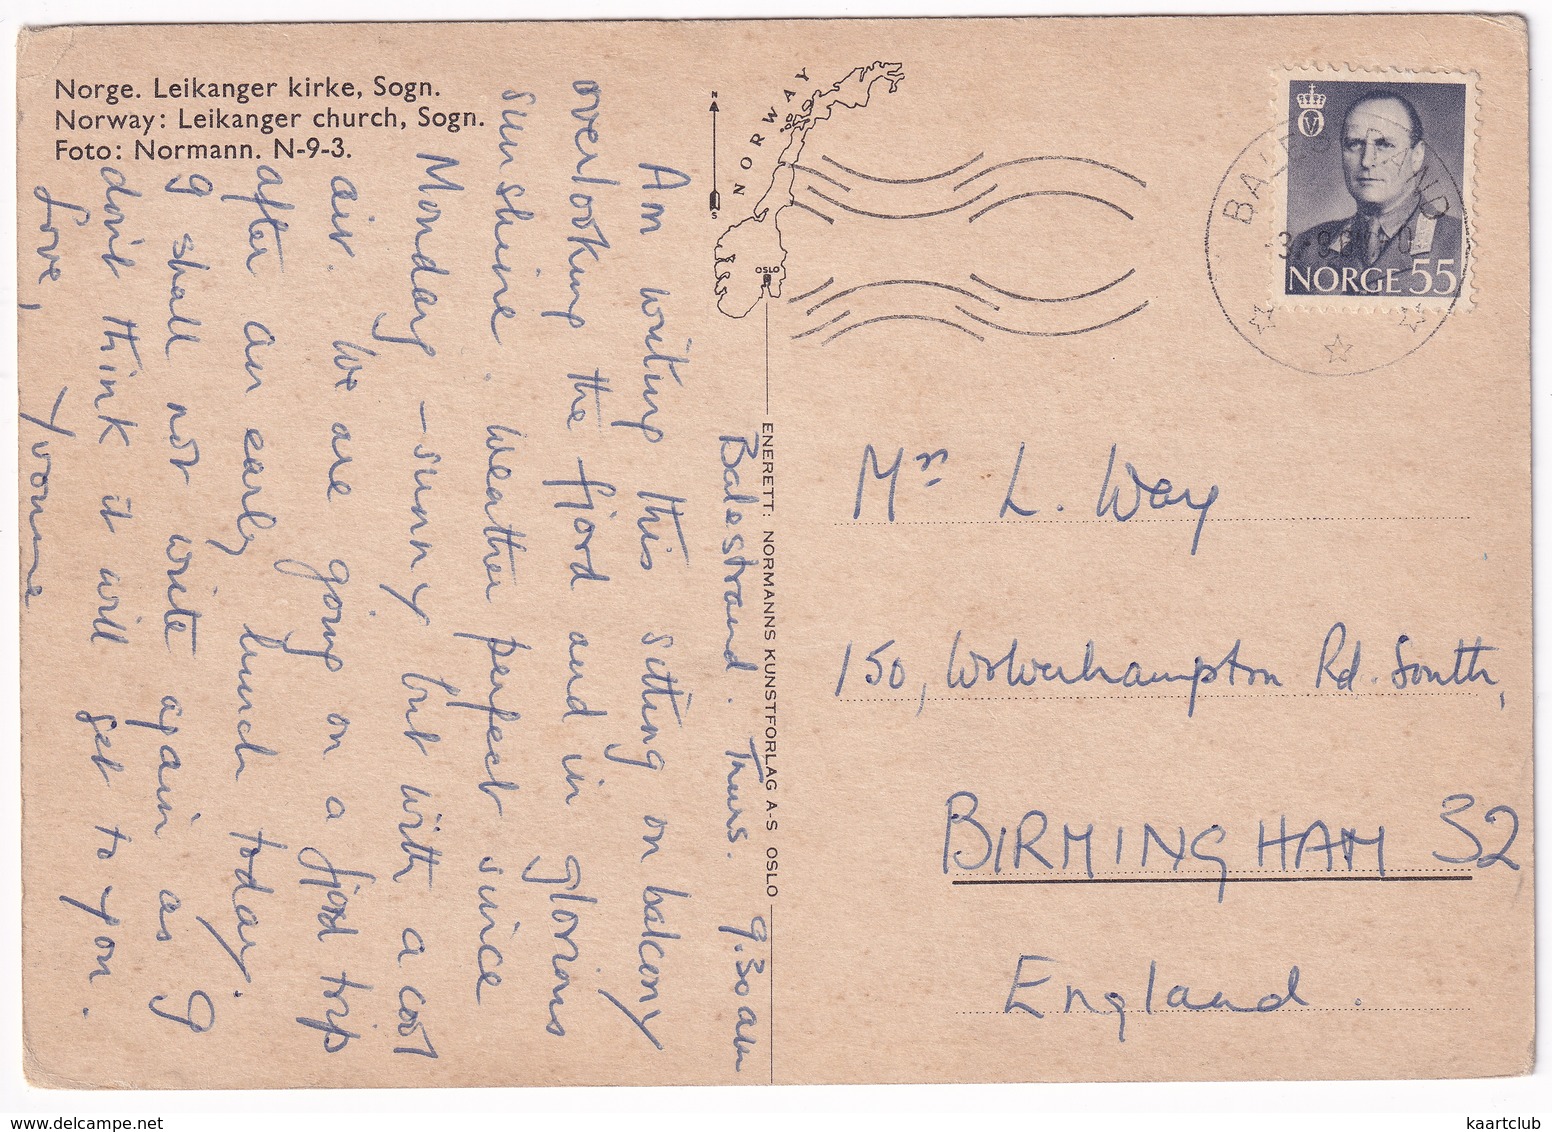 Norge. Leikanger kirke, Sogn.
Norway: Leikanger church, Sogn.
Foto: Normann. N-9-3.
N
S
NORWAY
OSLO
Balestrand. Thurs. 9.30 am
Am writing this sitting on balcony
overlooking the fjord and in glorious
sunshine. Weather perfect since
Monday – sunny but with a cool
air. We are going on a fjord trip
after an early lunch today.
I shall not write again as I
don't think it will get to you.
Love,
Yvonne
ENERETT: NORMANNS KUNSTFORLAG A-S OSLO
BALESTRAND
NORGE 55
Mrs L. Way
150, Wolverhampton Rd. South,
BIRMINGHAM 32
England.
kaartclub